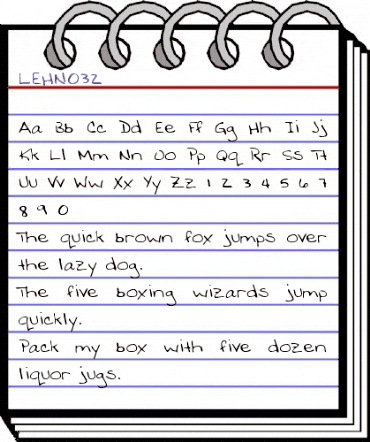 LEHN032
Aa Bb Cc Dd Ee Ff Gg Hh Ii Jj
Kk Ll Mm Nn Oo Pp Qq Rr Ss Tt
Uu Vv Ww Xx Yy Zz 1 2 3 4 5 6 7
8 9 0
The quick brown fox jumps over
the lazy dog.
The five boxing wizards jump
quickly.
Pack my box with five dozen
liquor jugs.